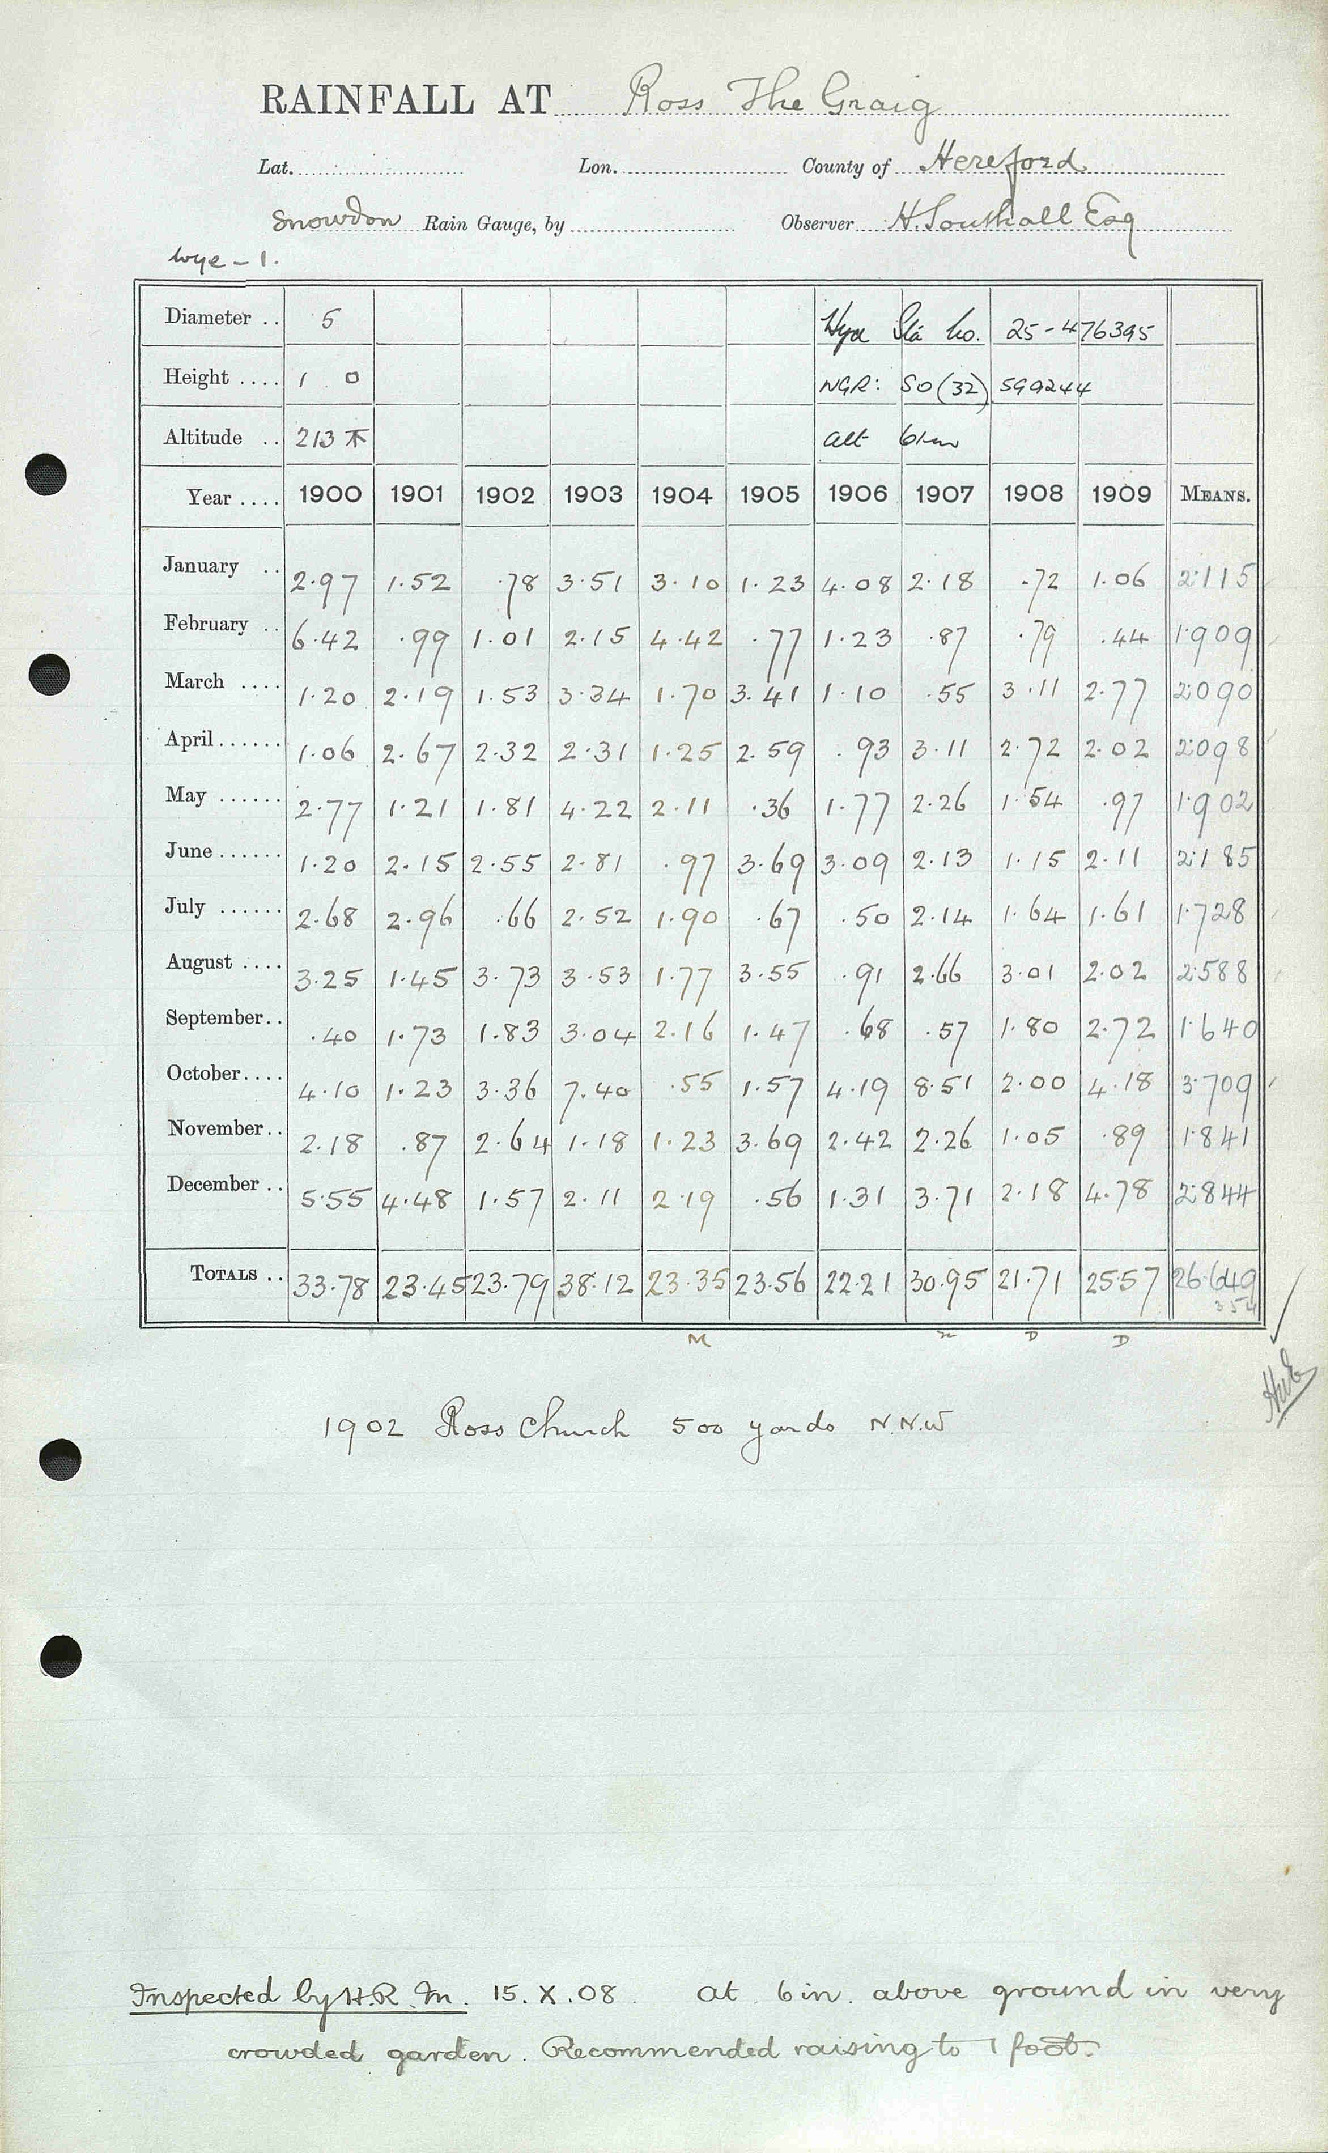 RAINFALL AT Ross The Graig
Lat. Lon. County of Hereford
Snowdon Rain Gauge, by Observer H. Southall Esq
Wye - 1.
Diameter .. 5 Hyd Sta No. 25-476395
Height .... 1 0 NGR: SO (32) 599244
Altitude .. 213 alt 61m
Year .... 1900 1901 1902 1903 1904 1905 1906 1907 1908 1909 MEANS.
January .. 2.97 1.52 .78 3.51 3.10 1.23 4.08 2.18 .72 1.06 2.115
February .. 6.42 .99 1.01 2.15 4.42 .77 1.23 .87 .79 .44 1.909
March .... 1.20 2.19 1.53 3.34 1.70 3.41 1.10 .55 3.11 2.77 2.090
April...... 1.06 2.67 2.32 2.31 1.25 2.59 .93 3.11 2.72 2.02 2.098
May ...... 2.77 1.21 1.81 4.22 2.11 .36 1.77 2.26 1.54 .97 1.902
June...... 1.20 2.15 2.55 2.81 .97 3.69 3.09 2.13 1.15 2.11 2.185
July ...... 2.68 2.96 .66 2.52 1.90 .67 .50 2.14 1.64 1.61 1.728
August .... 3.25 1.45 3.73 3.53 1.77 3.55 .91 2.66 3.01 2.02 2.588
September.. .40 1.73 1.83 3.04 2.16 1.47 .68 .57 1.80 2.72 1.640
October.... 4.10 1.23 3.36 7.40 .55 1.57 4.19 8.51 2.00 4.18 3.709
November.. 2.18 .87 2.64 1.18 1.23 3.69 2.42 2.26 1.05 .89 1.841
December .. 5.55 4.48 1.57 2.11 2.19 .56 1.31 3.71 2.18 4.78 2.844
TOTALS .. 33.78 23.45 23.79 38.12 23.35 23.56 22.21 30.95 21.71 25.57 26.649
354
M D D
1902 Ross Church 500 yards N.N.W
Inspected by H.R.M. 15.X.08. at 6 in. above ground in very
crowded garden. Recommended raising to 1 foot.